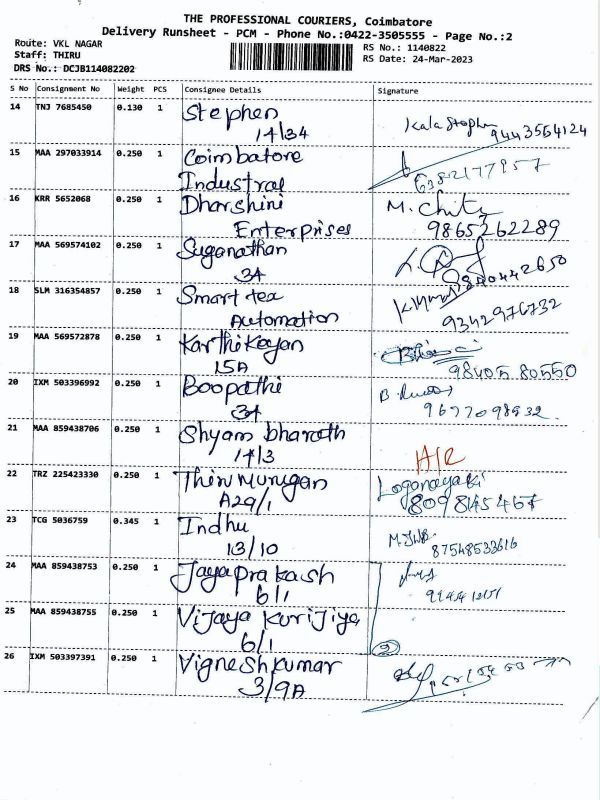 THE PROFESSIONAL COURIERS, Coimbatore
Delivery Runsheet - PCM - Phone No.:0422-3505555 - Page No.:2
Route: VKL NAGAR
Staff: THIRU
DRS No.: DCJB114082202
RS No.: 1140822
RS Date: 24-Mar-2023
S No Consignment No Weight PCS Consignee Details Signature
14 TNJ 7685450 0.130 1 Stephen Kala Stephen
14/34 9443554124
15 MAA 297033914 0.250 1 Coimbatore
Industral 6382177957
16 KRR 5652068 0.250 1 Dharshini M. Chitz
Enterprises 9865262289
17 MAA 569574102 0.250 1 Suganathan
34 9840442650
18 SLM 316354857 0.250 1 Smart tex
Automation 9342976732
19 MAA 569572878 0.250 1 Karthikeyan
15A 98405 80550
20 IXM 503396992 0.250 1 Boopathi
34 9677098932
21 MAA 859438706 0.250 1 Shyam bharath
14/3 H/R
22 TRZ 225423330 0.250 1 Thirumurugan Loganayaki
A29/1 8098145467
23 TCG 5036759 0.345 1 Indhu
13/10 87548533616
24 MAA 859438753 0.250 1 Jayaprakash
6/1
25 MAA 859438755 0.250 1 Vijaya Kurijiya
6/1 2
26 IXM 503397391 0.250 1 Vigneshkumar
3/9A